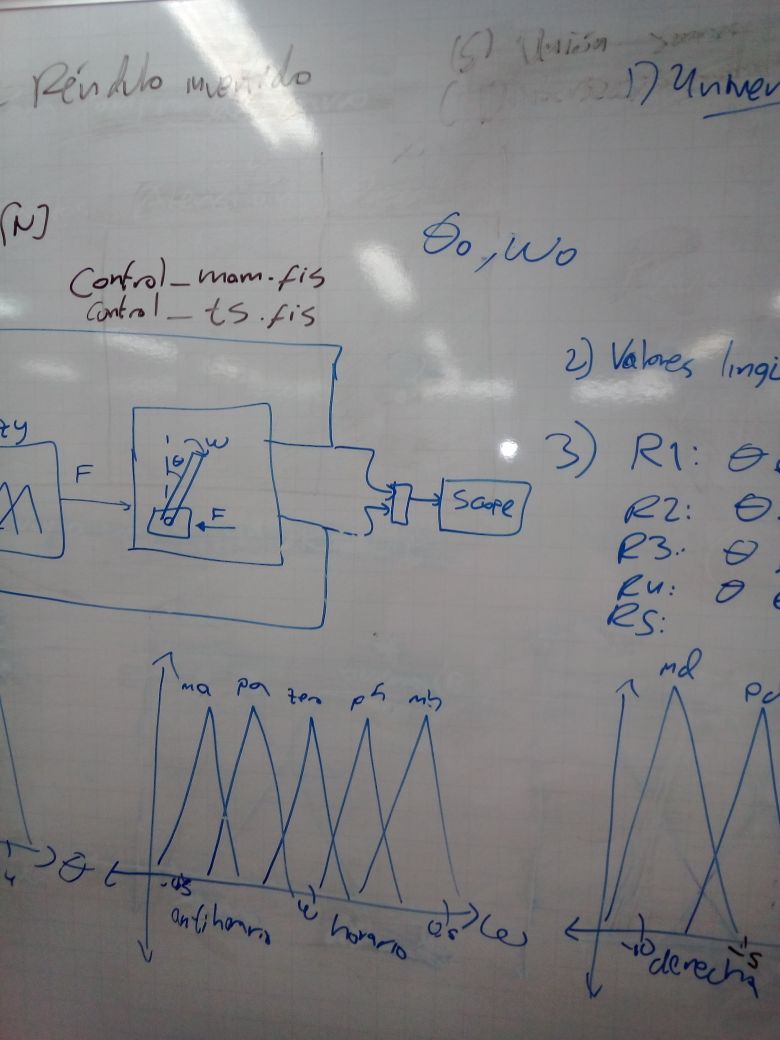 Péndulo invertido
1) Univer
[N]
θo, wo
Control_mam.fis
Control_ts.fis
2) Valores lingü
zy
F
θ
w
F
Scope
3) R1: θ
R2: θ
R3: θ
R4: θ
R5:
ma pa zero ph mh
md
θ
w
antihorario
horario
-10
-5
derecha